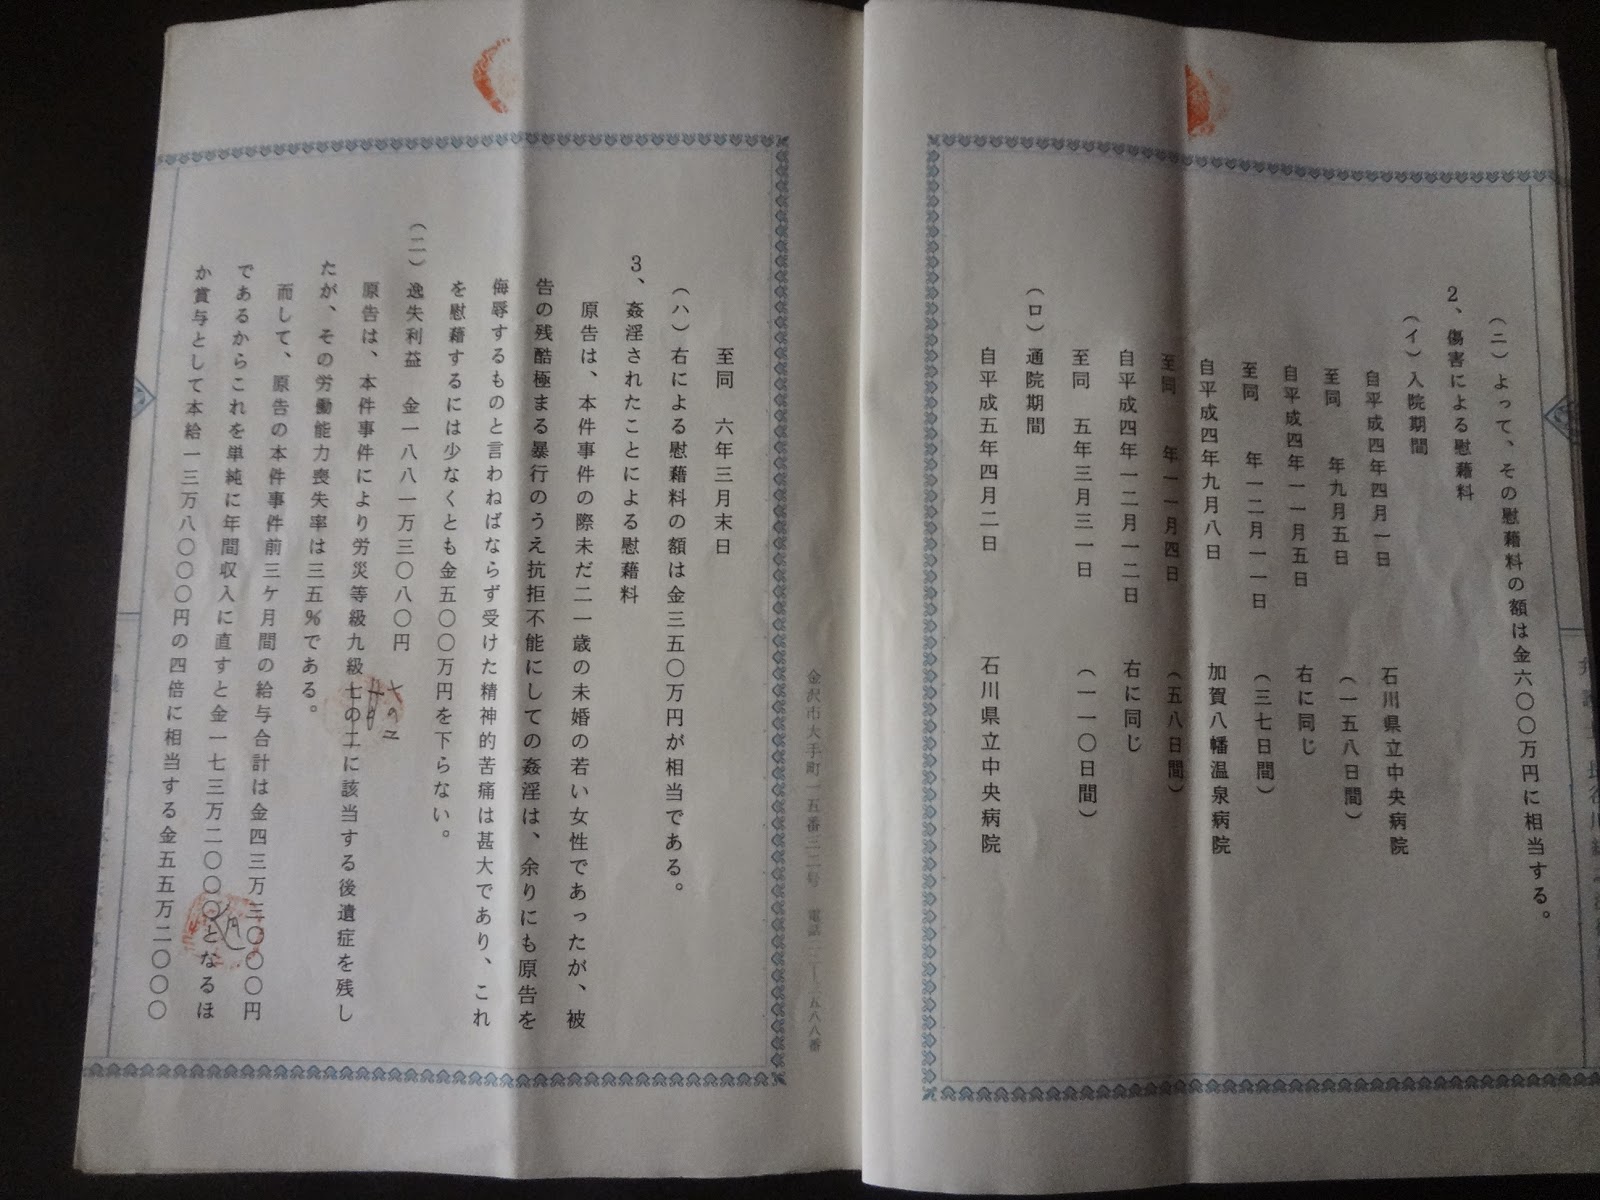 (ニ)よって、その慰藉料の額は金六〇〇万円に相当する。
2、傷害による慰藉料
(イ)入院期間
自平成四年四月一日 石川県立中央病院
至同 年九月五日 (一五八日間)
自平成四年一一月五日 右に同じ
至同 年一二月一一日 (三七日間)
自平成四年九月八日 加賀八幡温泉病院
至同 年一一月四日 (五八日間)
自平成四年一二月一二日 右に同じ
至同 五年三月三一日 (一一〇日間)
(ロ)通院期間
自平成五年四月二日 石川県立中央病院
金沢市大手町一五番三二号 電話
至同 六年三月末日
(ハ)右による慰藉料の額は金三五〇万円が相当である。
3、姦淫されたことによる慰藉料
原告は、本件事件の際未だ二一歳の未婚の若い女性であったが、被
告の残酷極まる暴行のうえ抗拒不能にしての姦淫は、余りにも原告を
侮辱するものと言わねばならず受けた精神的苦痛は甚大であり、これ
を慰藉するには少なくとも金五〇〇万円を下らない。
(二)逸失利益 金一八八一万三〇八〇円
原告は、本件事件により労災等級九級七の二に該当する後遺症を残し
たが、その労働能力喪失率は三五%である。
而して、原告の本件事件前三ケ月間の給与合計は金四三万三〇〇〇円
であるからこれを単純に年間収入に直すと金一七三万二〇〇〇となるほ
か賞与として本給一三万八〇〇〇円の四倍に相当する金五五万二〇〇〇